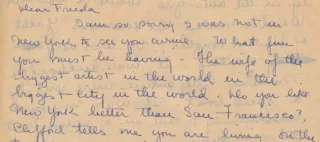 Dear Frieda
I am so sorry I was not in
New York to see you arrive. What fun
you must be having. The wife of the
biggest artist in the world in the
biggest city in the world. Do you like
New York better than San Francisco?
Clifford tells me you are living in the